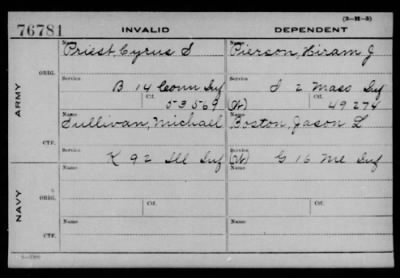 (3-H-5)
76781 INVALID DEPENDENT
Name Name
Priest, Cyrus S Pierson, Hiram J
ARMY
ORIG.
Service Service
B 14 Conn Inf I 2 Mass Inf
Ctf. Ctf.
53569 (W) 49274
Name
Sullivan, Michael Boston, Jason L
CTF.
Service Service
K 92 Ill Inf (W) G 16 Me Inf
NAVY
Name Name
ORIG.
Service Ctf. Service Ctf.
Name Name
CTF.
Service Service